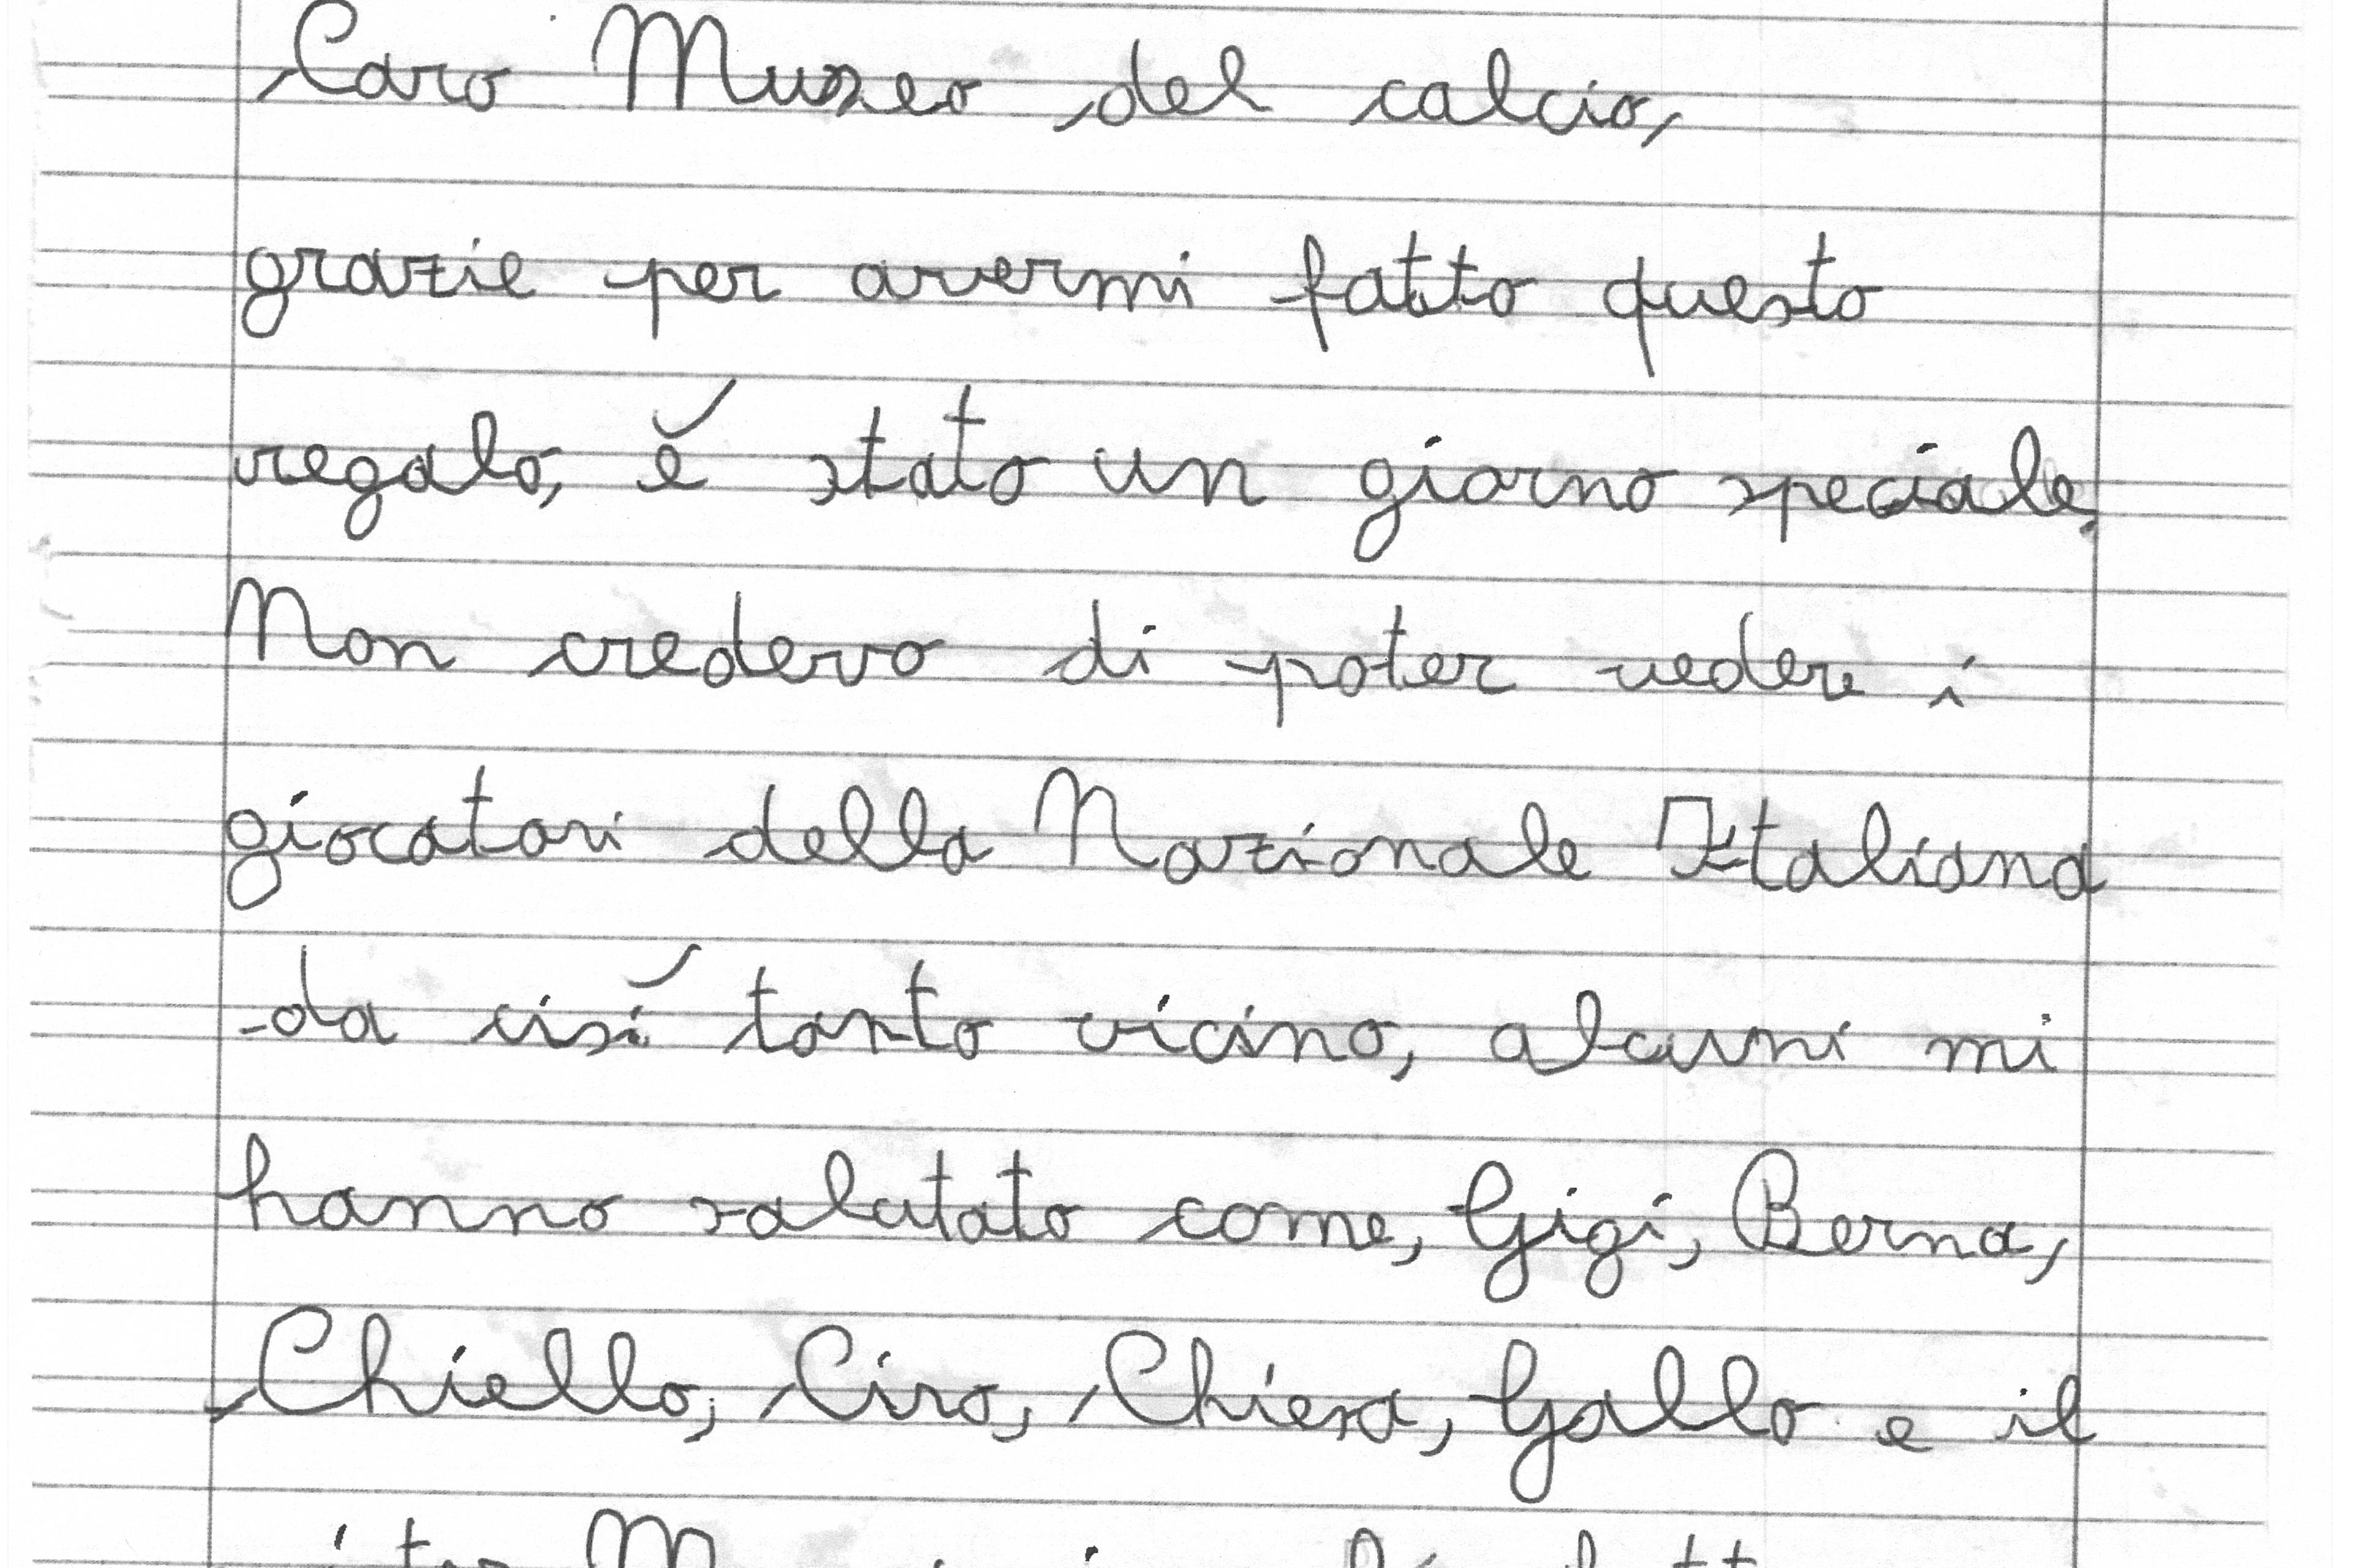 Caro Museo del calcio,
grazie per avermi fatto questo
regalo, é stato un giorno speciale.
Non credevo di poter vedere i
giocatori della Nazionale Italiana
da cisí tanto vicino, alcuni mi
hanno salutato come, Gigi, Berna,
Chiello, Ciro, Chiesa, Gallo e il